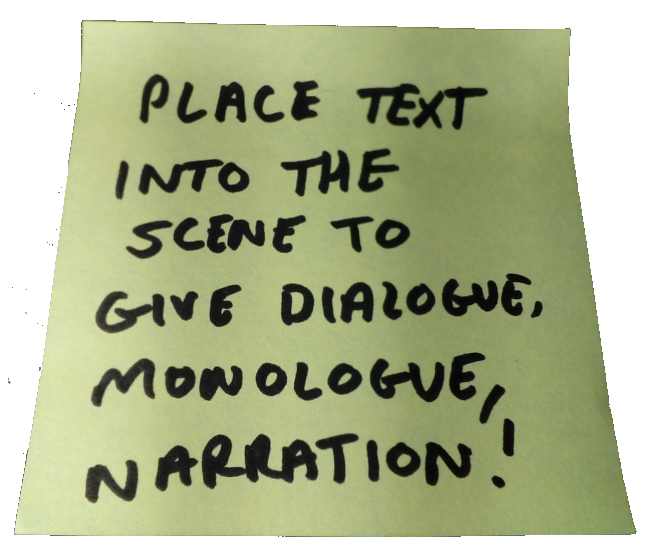 PLACE TEXT
INTO THE
SCENE TO
GIVE DIALOGUE,
MONOLOGUE,
NARRATION!